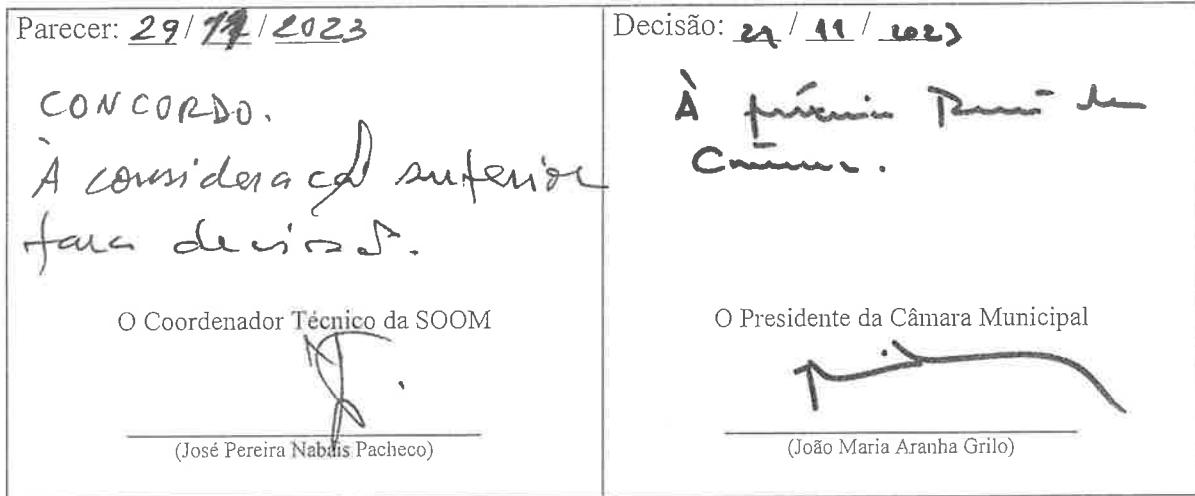 Parecer: 29/11/2023
CONCORDO.
À consideração superior
para decisão.
O Coordenador Técnico da SOOM
(José Pereira Nabais Pacheco)
Decisão: 29/11/2023
À próxima Reunião de
Câmara.
O Presidente da Câmara Municipal
(João Maria Aranha Grilo)